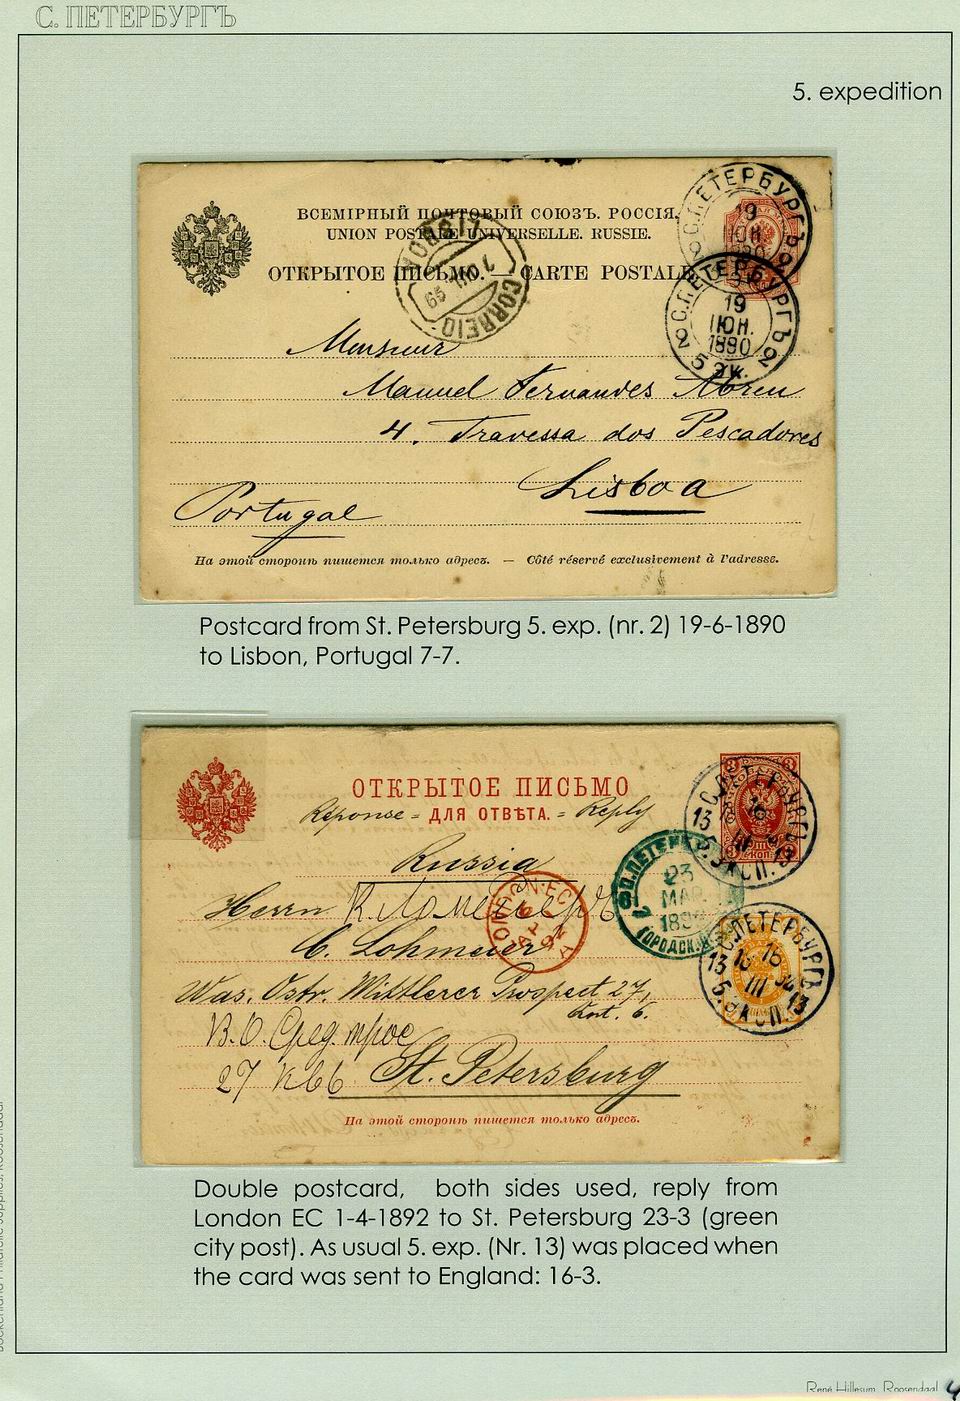 С. ПЕТЕРБУРГЪ
5. expedition
ВСЕМІРНЫЙ ПОЧТОВЫЙ СОЮЗЪ. РОССІЯ.
UNION POSTALE UNIVERSELLE. RUSSIE.
ОТКРЫТОЕ ПИСЬМО. — CARTE POSTALE
С.ПЕТЕРБУРГЪ
19
ІЮН.
1890
2 2
С.ПЕТЕРБУРГЪ
19
ІЮН.
1890
2 5 ЭК. 2
LISBOA
7 JUL
CORREIO
Monsieur
Manuel Fernandes Abreu
4. Travessa dos Pescadores
Lisboa
Portugal
На этой сторонѣ пишется только адресъ. — Côté réservé exclusivement à l'adresse.
Postcard from St. Petersburg 5. exp. (nr. 2) 19-6-1890
to Lisbon, Portugal 7-7.
ОТКРЫТОЕ ПИСЬМО
Réponse = ДЛЯ ОТВѢТА. = Reply
С.ПЕТЕРБУРГЪ
13 5. ЭКСП. 13
Russia
Herrn К Ломейеръ
C. Lohmeier
LONDON·EC
AP 1
92
С.ПЕТЕРБ
23
МАР.
189
ГОРОДСК
С.ПЕТЕРБУРГЪ
16 16
III
13 5. ЭКСП. 13
Was. Ostr. Mittlerer Prospect 27,
Qrt. 6.
В.О. Сред. прос
27 кв 6 St. Petersburg
На этой сторонѣ пишется только адресъ.
Double postcard, both sides used, reply from
London EC 1-4-1892 to St. Petersburg 23-3 (green
city post). As usual 5. exp. (Nr. 13) was placed when
the card was sent to England: 16-3.
René Hillesum, Roosendaal 4